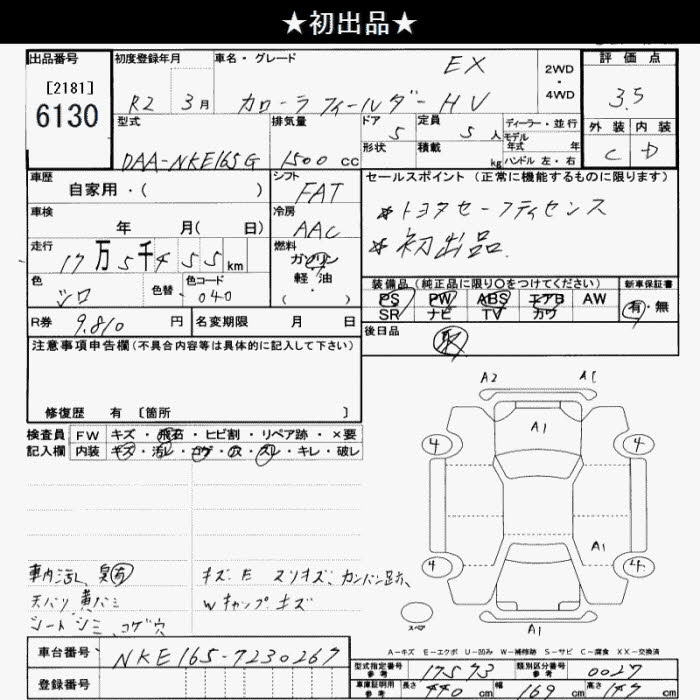 ★初出品★
出品番号 初度登録年月 車名・グレード 評価点
[2181] EX 2WD・4WD
6130 R2 3月 カローラフィールダー HV 3.5
型式 排気量 ドア 5 定員 5人 ディーラー・並行 外装 内装
モデル年式 年
DAA-NKE165G 1500cc 形状 積載 kg ハンドル 左・右 C D
車歴 シフト セールスポイント(正常に機能するものに限ります)
自家用・( ) FAT
車検 冷房 ☆トヨタセーフティセンス
年 月( 日) AAC
走行 燃料 ☆初出品.
17万5千455km ガソリン
色 色替 色コード 軽油 装備品(純正品に限り○をつけてください) 新車保証書
シロ 040 ・( ) PS PW ABS エアB AW 有・無
SR ナビ TV カワ
R券 9,810円 名変期限 月 日 後日品 取
注意事項申告欄(不具合内容等は具体的に記入して下さい)
A2 A1
A1
修復歴 有 [箇所 ]
検査員 FW キズ・飛石・ヒビ割・リペア跡・×要 4 4
記入欄 内装 キズ・汚レ・コゲ・穴・スレ・キレ・破レ
A1
車内汚レ、臭有 キズ、E スリキズ、カンバン跡 4 4
天バリ黄バミ Wキャップキズ
シートシミ、コゲ穴 スペア A1
A-キズ E-エクボ U-凹み W-補修跡 S-サビ C-腐食 XX-交換済
車台番号 NKE165-7230267 型式指定番号 参考 17573 類別区分番号 参考 0027
登録番号 車庫証明用 参考 長さ 440cm 幅 169cm 高さ 147cm